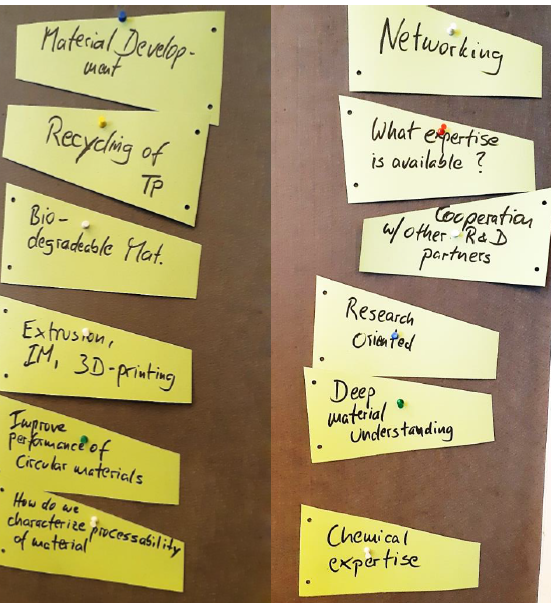 Material Develop-
ment
Recycling of
TP
Bio-
degradeable Mat.
Extrusion,
IM, 3D-printing
Improve
performance of
Circular materials
How do we
characterize processability
of material
Networking
What expertise
is available ?
Cooperation
w/ other R&D
partners
Research
Oriented
Deep
material
understanding
Chemical
expertise